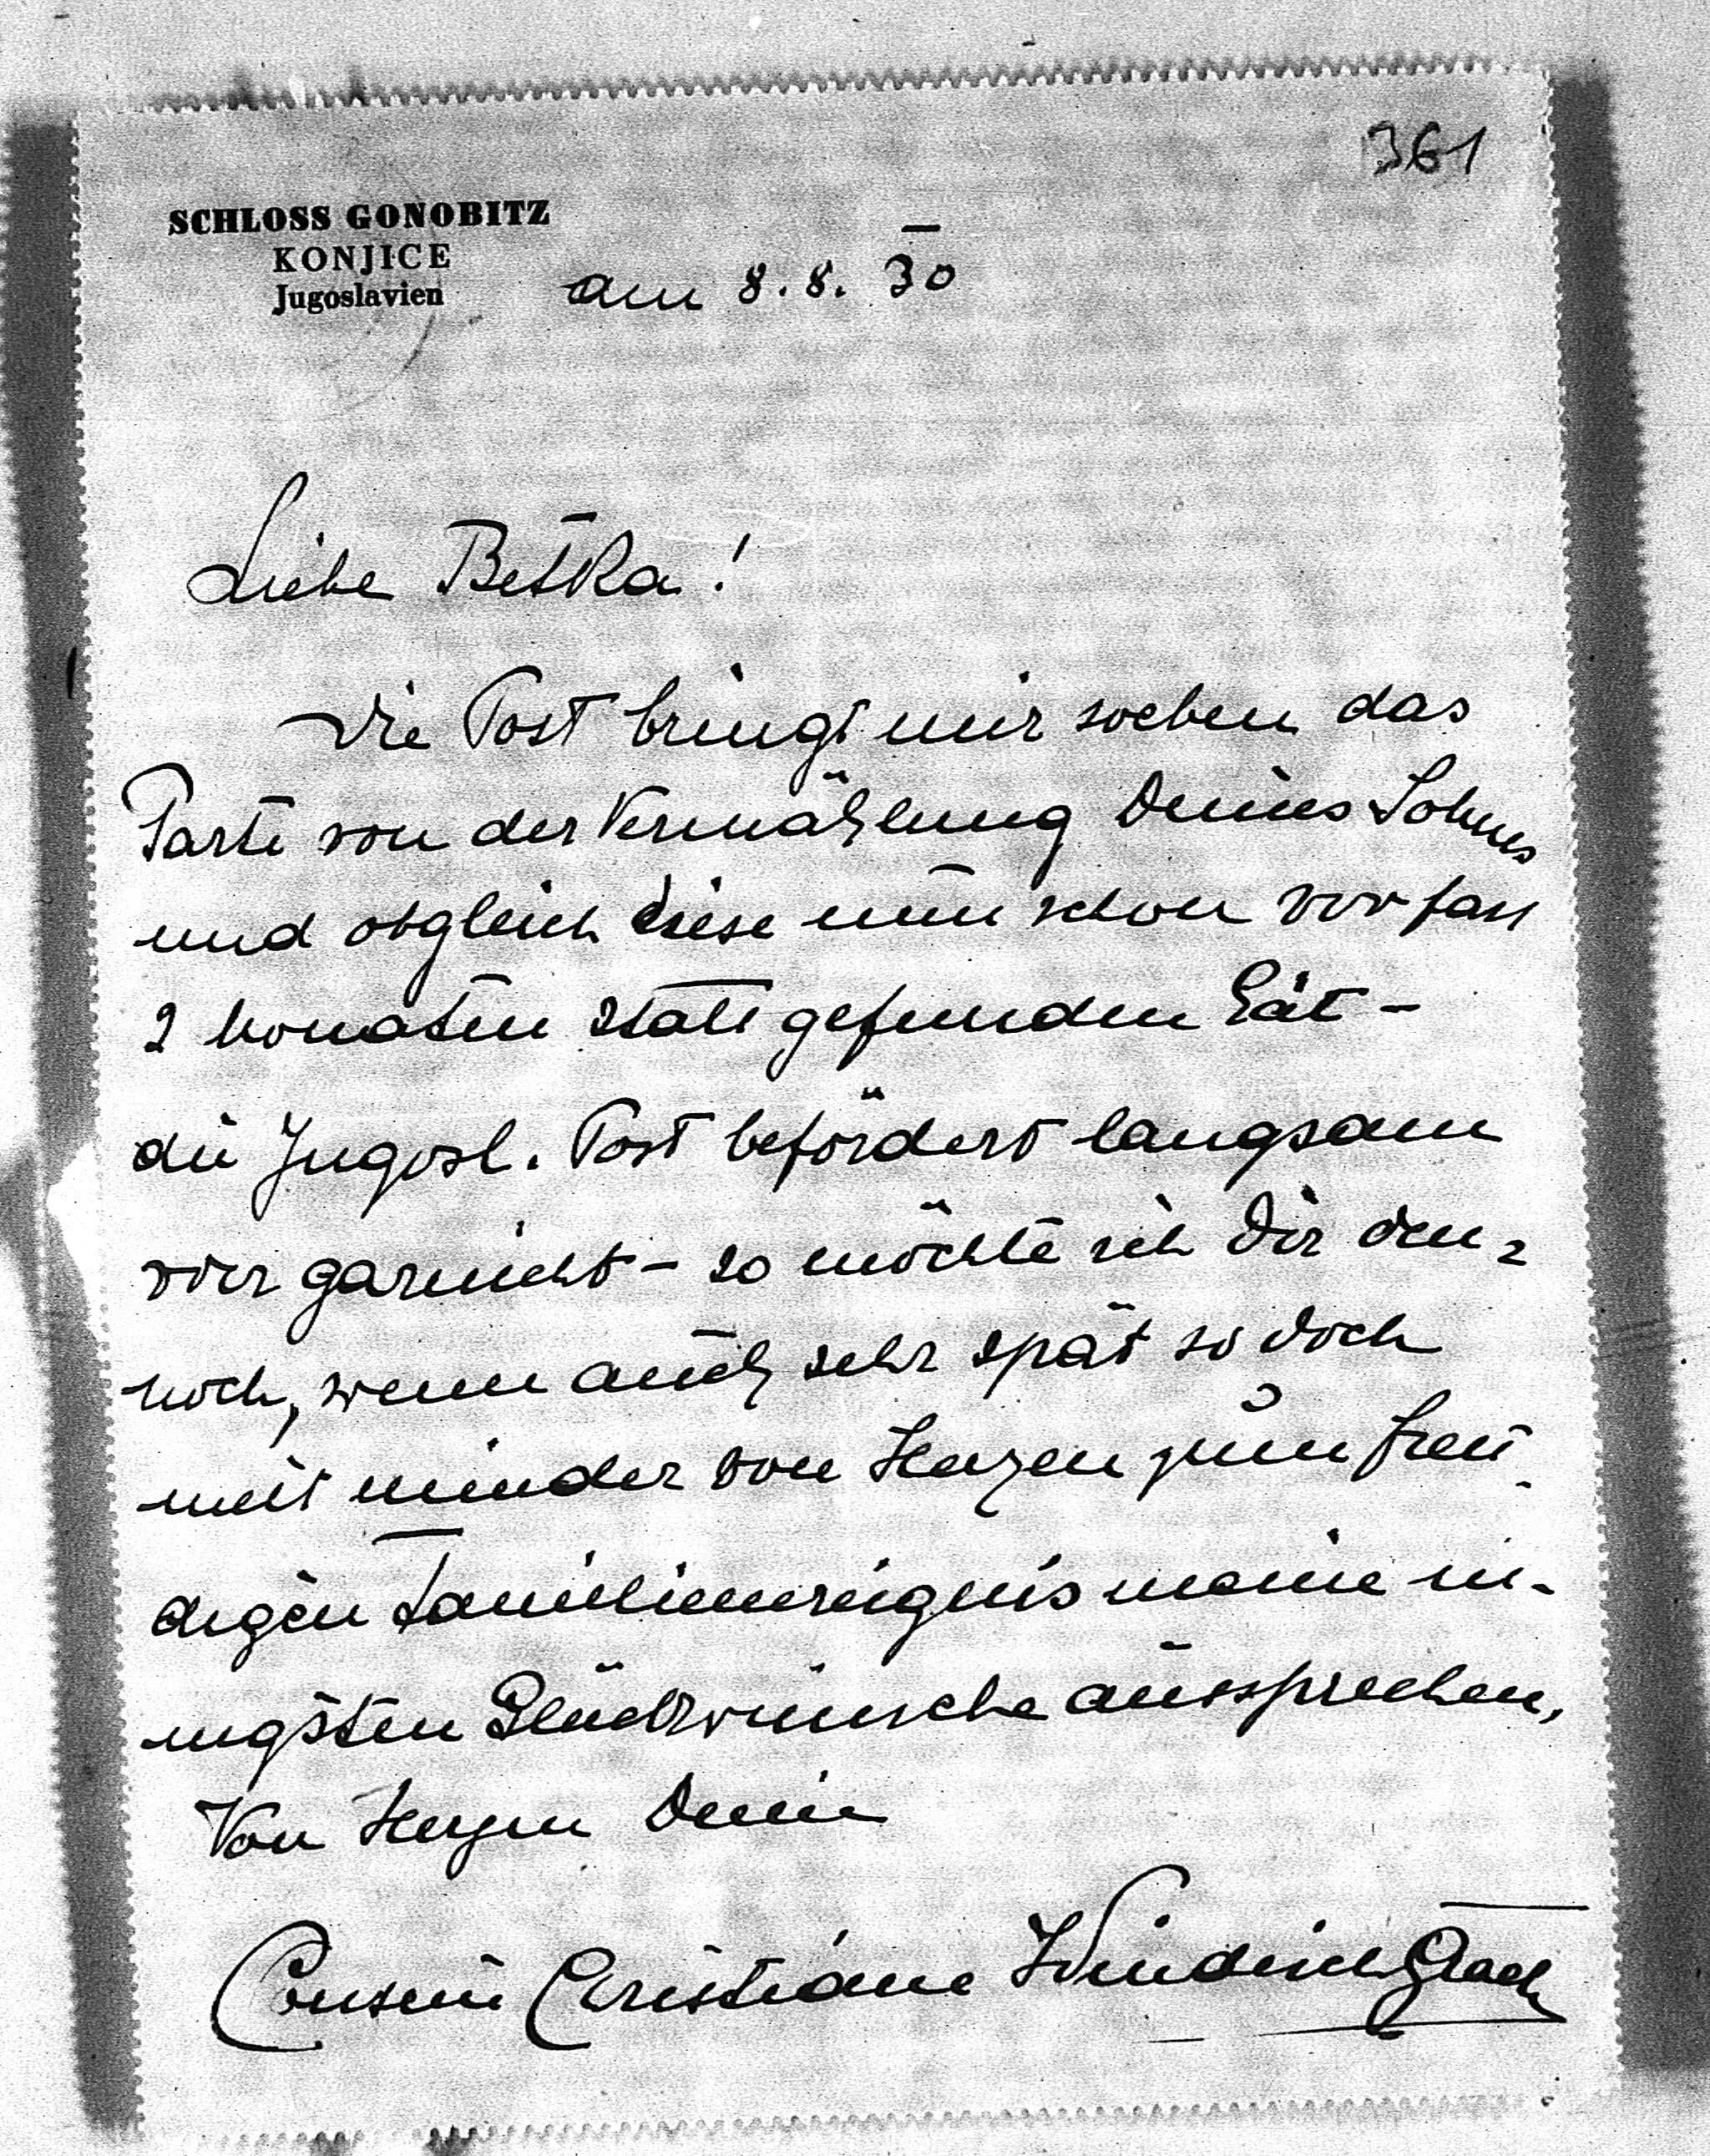 361
SCHLOSS GONOBITZ
KONJICE
Jugoslavien
am 8.8.30
Liebe Betka!
Die Post bringt mir soeben das
Parte von der Vermählung Deines Sohnes
und obgleich diese nun schon vor fast
2 Monaten statt gefunden hat –
die Jugosl. Post befördert langsam
oder garnicht – so möchte ich Dir den-
noch, wenn auch sehr spät so doch
nicht minder von Herzen zum freu-
digen Familienereignis meine in-
nigsten Glückwünsche aussprechen,
Von Herzen Deine
Cousine Christiane Windischgraetz